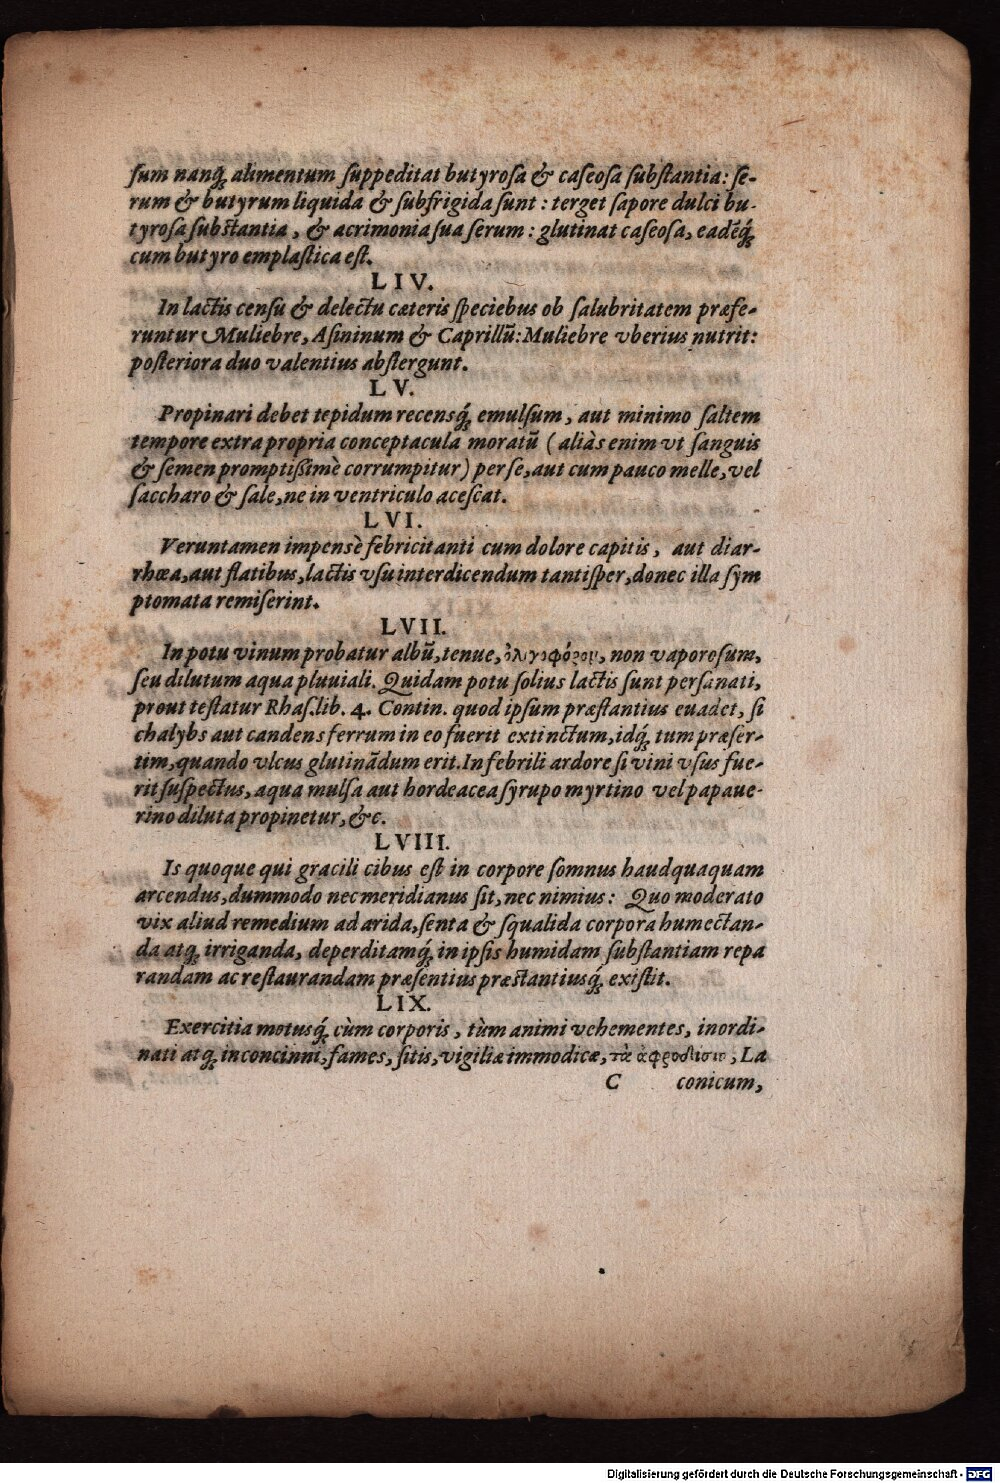 ſum nanq́; alimentum ſuppeditat butyroſa & caſeoſa ſubſtantia: ſe-
rum & butyrum liquida & ſubfrigida ſunt : terget ſapore dulci bu-
tyroſa ſubſtantia, & acrimonia ſua ſerum : glutinat caſeoſa, eadēq́;
cum butyro emplaſtica eſt.
LIV.
In lactis cenſu & delectu cæteris ſpeciebus ob ſalubritatem præfe-
runtur Muliebre, Aſininum & Caprillū: Muliebre vberius nutrit:
poſteriora duo valentius abſtergunt.
LV.
Propinari debet tepidum recensq́; emulſum, aut minimo ſaltem
tempore extra propria conceptacula moratū ( aliàs enim vt ſanguis
& ſemen promptißimè corrumpitur) per ſe, aut cum pauco melle, vel
ſaccharo & ſale, ne in ventriculo aceſcat.
LVI.
Veruntamen impensè febricitanti cum dolore capitis, aut diar-
rhœa, aut flatibus, lactis vſu interdicendum tantiſper, donec illa ſym
ptomata remiſerint.
LVII.
In potu vinum probatur albū, tenue, ὀλιγοφόρον, non vaporoſum,
ſeu dilutum aqua pluuiali. Quidam potu ſolius lactis ſunt perſanati,
prout teſtatur Rhaſ. lib. 4. Contin. quod ipſum præſtantius euadet, ſi
chalybs aut candens ferrum in eo fuerit extinctum, idq́; tum præſer-
tim, quando vlcus glutinādum erit. In febrili ardore ſi vini vſus fue-
rit ſuſpectus, aqua mulſa aut hordeacea ſyrupo myrtino vel papaue-
rino diluta propinetur, &c.
LVIII.
Is quoque qui gracili cibus eſt in corpore ſomnus haudquaquam
arcendus, dummodo nec meridianus ſit, nec nimius: Quo moderato
vix aliud remedium ad arida, ſenta & ſqualida corpora humectan-
da atq; irriganda, deperditamq́; in ipſis humidam ſubſtantiam repa
randam ac reſtaurandam præſentius præſtantiusq́; exiſtit.
LIX.
Exercitia motusq́; cùm corporis, tùm animi vehementes, inordi-
nati atq; inconcinni, fames, ſitis, vigiliæ immodicæ, τὰ ἀφροδίσια, La
C conicum,
Digitalisierung gefördert durch die Deutsche Forschungsgemeinschaft - DFG